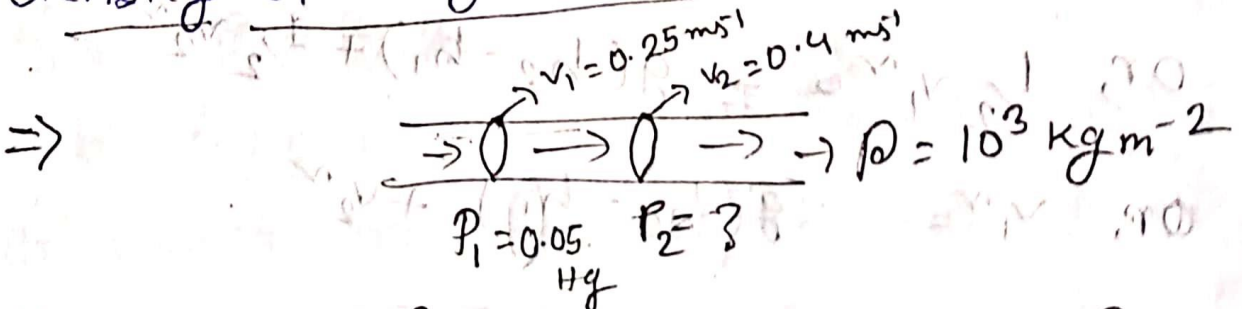 v₁ = 0.25 ms⁻¹
v₂ = 0.4 ms⁻¹
=> → → → → ρ = 10³ kgm⁻²
P₁ = 0.05 P₂ = ?
Hg